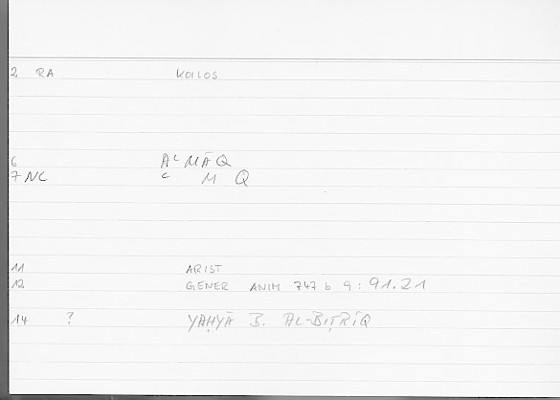 2 RA KOILOS
6 AʿMĀQ
7 NC ʿ M Q
11 ARIST
12 GENER ANIM 747 b 9 : 91.21
14 ? YAḤYĀ B. AL-BIṬRĪQ